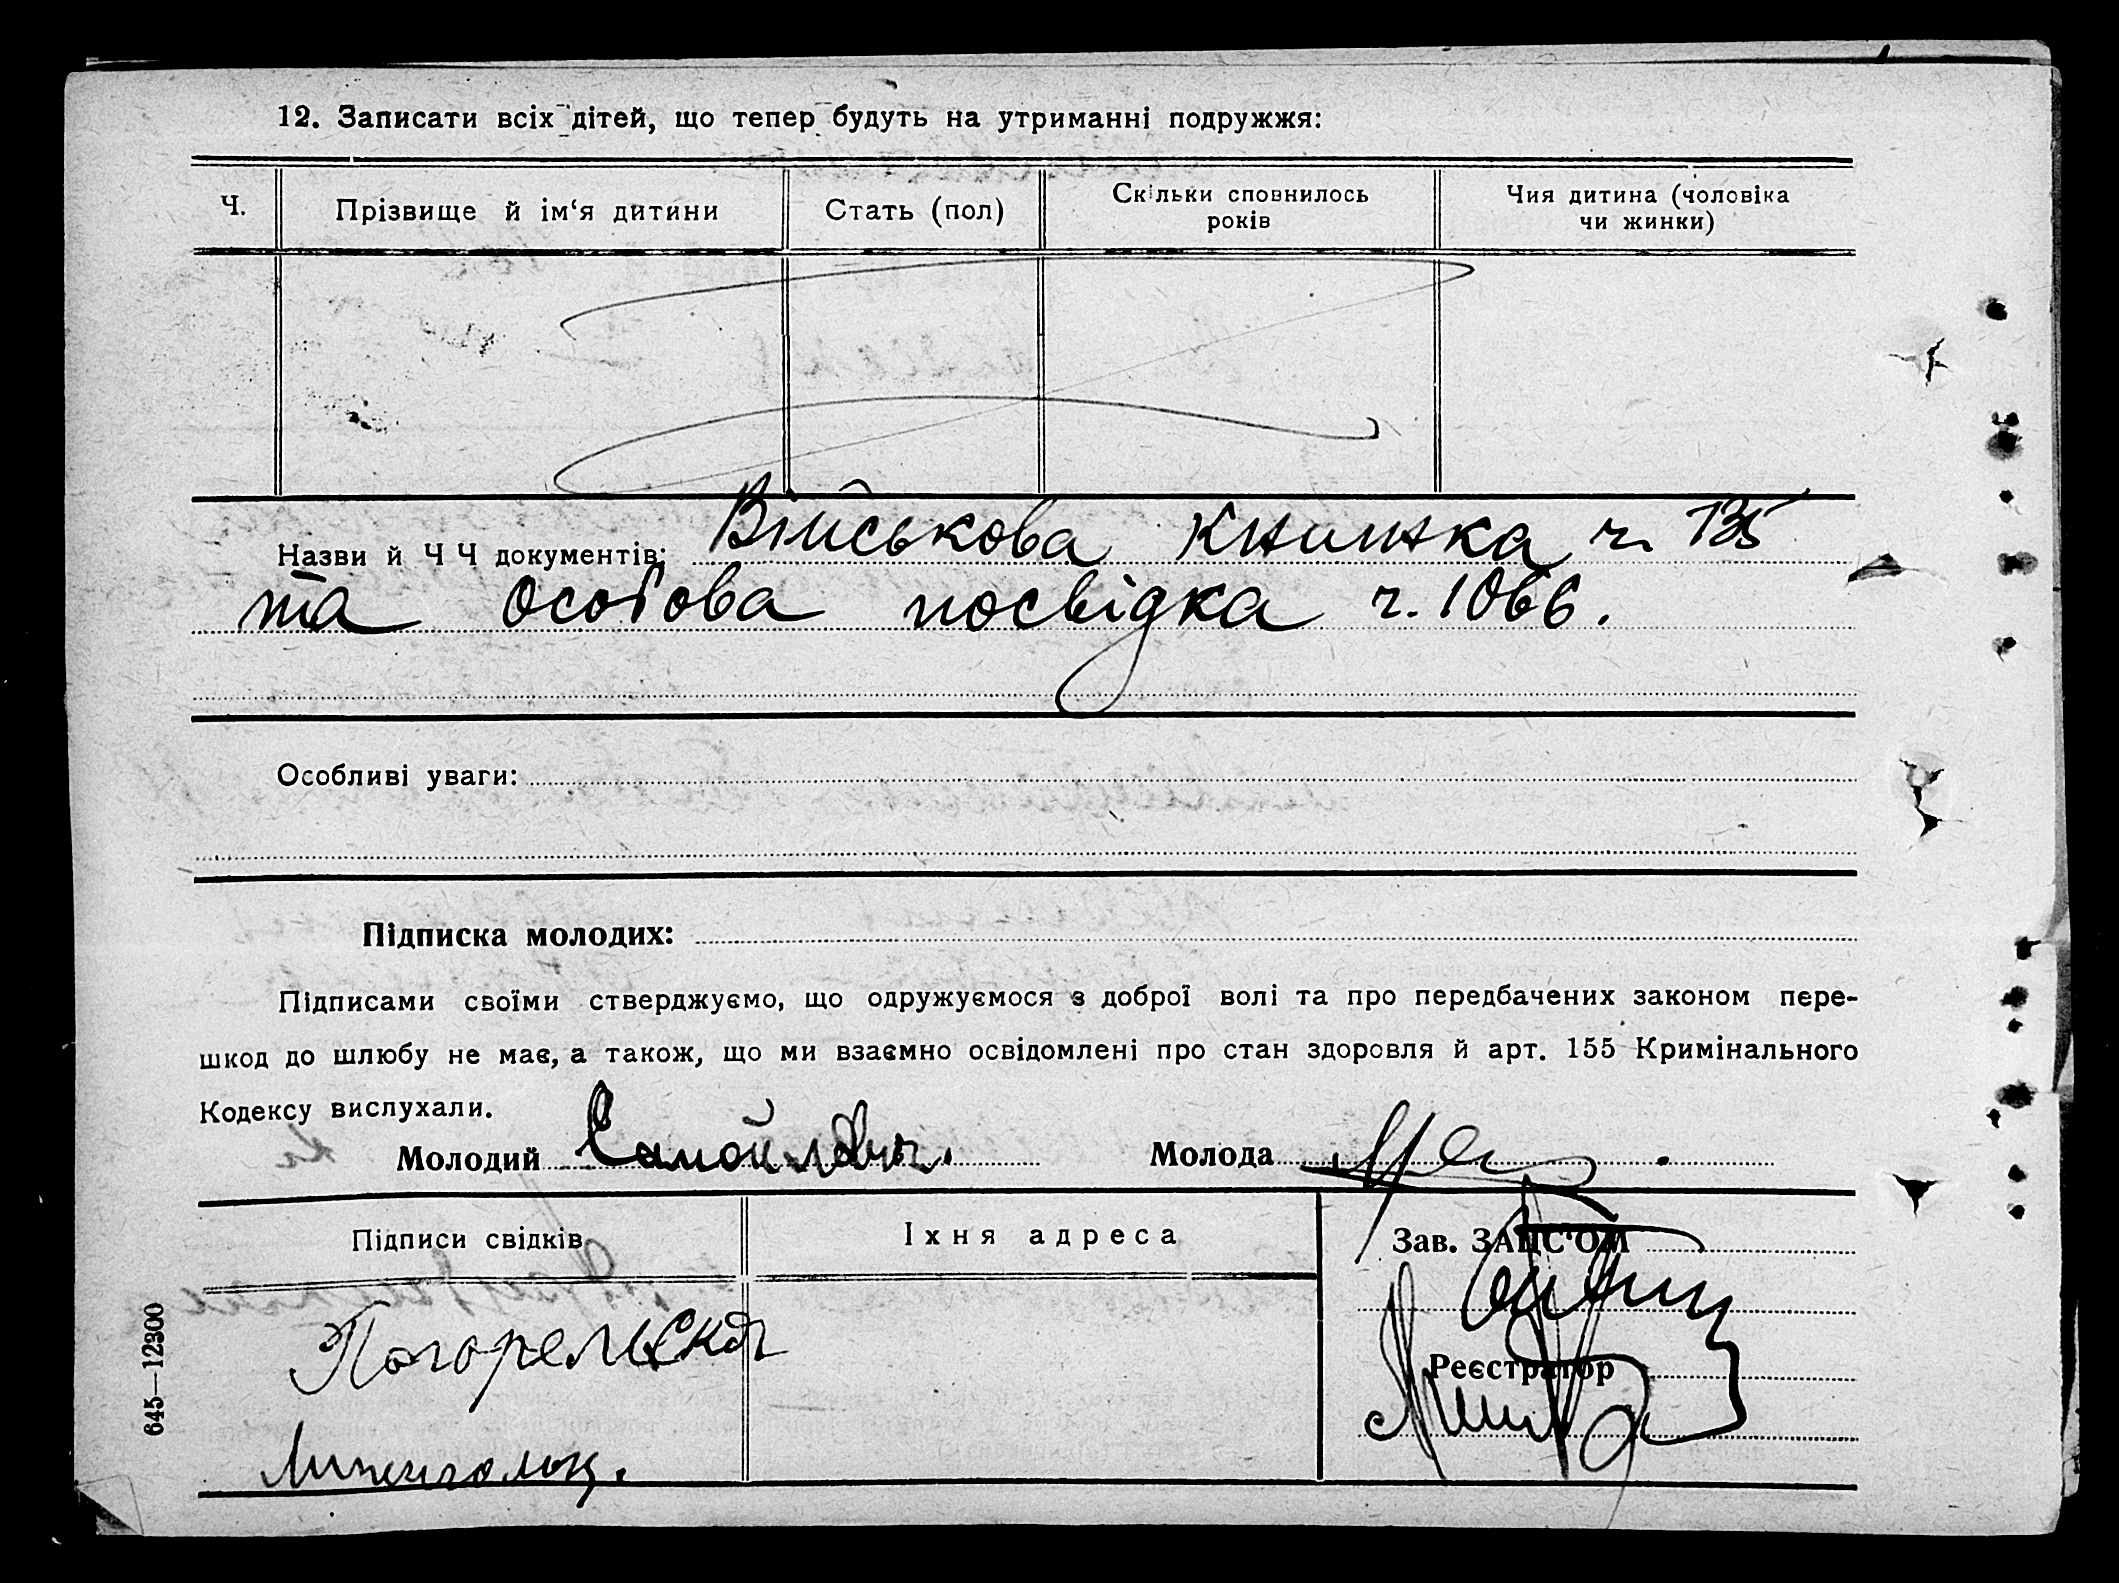 12. Записати всіх дітей, що тепер будуть на утриманні подружжя:
Ч.
Прізвище й ім‘я дитини
Стать (пол)
Скільки сповнилось
років
Чия дитина (чоловіка
чи жинки)
Військова Книжка ч. 135
Назви й Ч Ч документів:
та Особова посвідка ч. 1066.
Особливі уваги:
Підписка молодих:
Підписами своїми стверджуємо, що одружуємося з доброї волі та про передбачених законом пере-
шкод до шлюбу не має, а також, що ми взаємно освідомлені про стан здоровля й арт. 155 Кримінального
Кодексу вислухали.
Молодий Самойлович.
Молода
Підписи свідків
Їхня адреса
Зав. ЗАЦС‘ОМ
Погорельская
Реєстратор
645—12300